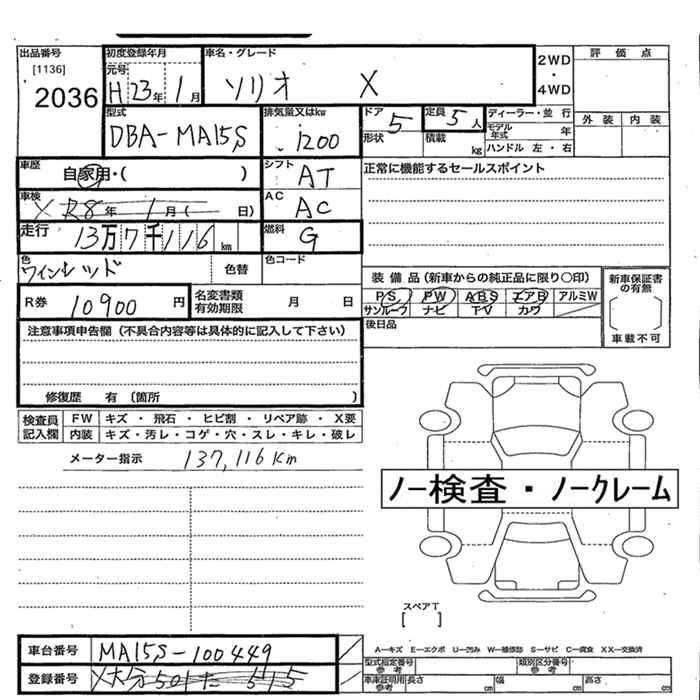 出品番号 初度登録年月 車名・グレード
[1136] 元号 ソリオ X 2WD 評価点
2036 H23年1月 4WD
型式 排気量又はkw ドア 定員 ディーラー・並行 外装 内装
DBA-MA15S 1200 5 5人 モデル年式 年
形状 積載 kg ハンドル 左・右
車歴 自家用・( ) シフト AT 正常に機能するセールスポイント
車検 R8年1月( 日) AC AC
走行 13万7千116km 燃料 G
色 ワインレッド 色替 色コード
装備品(新車からの純正品に限り〇印) 新車保証書の有無
R券 10900円 名変書類有効期限 月 日 PS PW ABS エアB アルミW
サンルーフ ナビ TV カワ
注意事項申告欄(不具合内容等は具体的に記入して下さい) 後日品 車載不可
修復歴 有 (箇所 )
検査員記入欄 FW キズ・飛石・ヒビ割・リペア跡・X要
内装 キズ・汚レ・コゲ・穴・スレ・キレ・破レ
メーター指示 137,116Km
ノー検査・ノークレーム
スペアT
[ ]
車台番号 MA15S-100449
A-キズ E-エクボ U-凹み W-補修跡 S-サビ C-腐食 XX-交換済
登録番号 大分501 た 515
型式指定番号 参考 類別区分番号 参考
車車証明用 参考 長さ cm 幅 cm 高さ cm